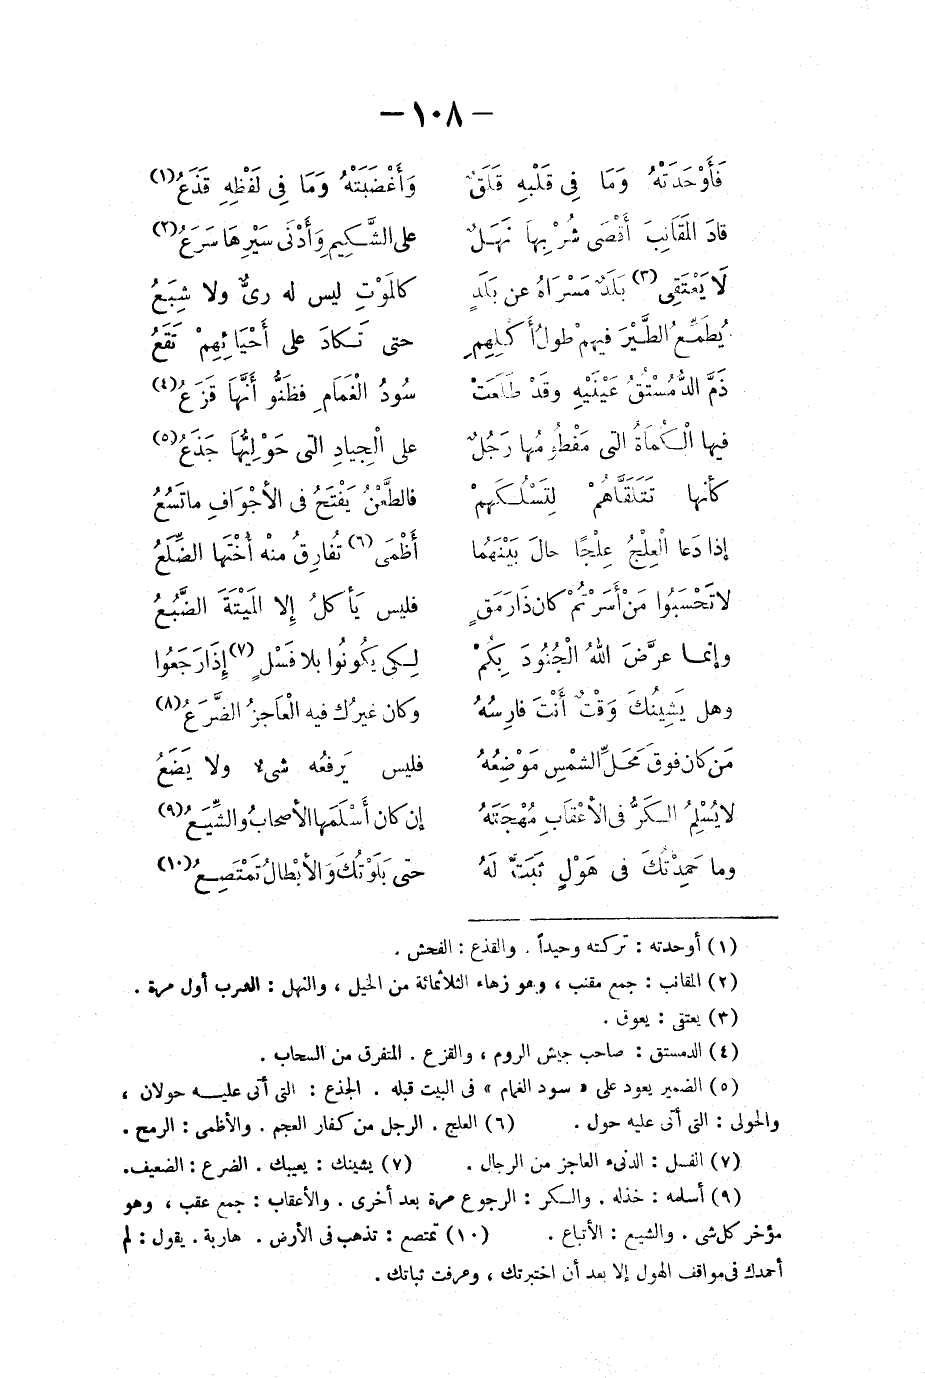 — ١٠٨ —
فَأَوْحَدَتْهُ وَمَا فِى قَلْبِهِ قَلَقٌ وَأَغْضَبَتْهُ وَمَا فِى لَفْظِهِ قَذَعُ(١)
قادَ المَقَانِبَ أَقْصَى شُرْبِهاَ نَهَلٌ على الشَّكِيمِ وَأَدْنَى سَيْرِهاَ سَرَعُ(٢)
لَا يَعْتَقِى(٣) بَلَدٌ مَسْرَاهُ عن بَلَدٍ كالمَوْتِ ليس له رىٌّ ولا شِبَعُ
يُطَمِّعُ الطَّيْرَ فيهمْ طولُ أَكْلِهِمِ حتى تَكادَ على أَحْيَائِهِمْ تَقَعُ
ذَمَّ الدُّمُسْتُقُ عَيْنَيْهِ وقَدْ طَلَعَتْ سُودُ الْغَمَامِ فظَنُّو أَنَّهاَ قَزَعُ(٤)
فيها الْكُمَاةُ التى مَفْطُومُها رَجُلٌ على الْجِيادِ التى حَوْلِيُّهاَ جَذَعُ(٥)
كأنها تَتَلَقَّاهُمْ لِتَسْلُكَهمْ فالطَّعْنُ يَفْتَحُ فى الأجْوَافِ ماتَسَعُ
إذا دَعا الْعِلْجُ عِلْجًا حالَ بَيْنَهُما أَظْمَى(٦) تُفارِقُ منْه أُخْتَها الضِّلَعُ
لاتَحْسَبُوا مَنْ أَسَرْتُمْ كان ذَا رَمَقٍ فليس يَأكلُ إلا المَيْتَةَ الضَّبُعُ
وإنما عرَّضَ اللهُ الْجُنُودَ بِكُمْ لِكى يكُونُوا بلا فَسْلٍ(٧) إِذَا رَجَعُوا
وهل يَشِينُكَ وَقْتٌ أَنْتَ فارِسُهُ وكان غيرُك فيه الْعَاجزُ الضَّرَعُ(٨)
مَن كان فوقَ مَحَلِّ الشمْسِ مَوْضِعُهُ فليس يَرفعُه شىء ولا يَضَعُ
لايُسْلِمُ الكَرُّ فى الأعْقَابِ مُهْجَتَهُ إن كان أَسْلَمَها الأصحابُ والشِّيَعُ(٩)
وما حَمِدْتُكَ فى هَوْلٍ ثَبَتَّ لَهُ حتى بَلَوْتُكَ وَالأبْطالُ تَمْتَصِعُ(١٠)
(١) أوحدته : تركته وحيداً . والقذع : الفحش .
(٢) المقانب : جمع مقنب ، وهو زهاء الثلاثمائة من الخيل ، والنهل : الشرب أول مرة .
(٣) يعتقى : يعوق .
(٤) الدمستق : صاحب جيش الروم ، والقزع . المتفرق من السحاب .
(٥) الضمير يعود على « سود الغمام » فى البيت قبله . الجذع : التى أتى عليه حولان ،
والحولى : التى أتى عليه حول . (٦) العلج . الرجل من كفار العجم . والأظمى : الرمح .
(٧) الفسل : الدنىء العاجز من الرجال . (٧) يشينك : يعيبك . الضرع : الضعيف.
(٩) أسلمه : خذله . والكر : الرجوع مرة بعد أخرى . والأعقاب : جمع عقب ، وهو
مؤخر كل شى . والشيع : الأتباع . (١٠) تمتصع : تذهب فى الأرض . هاربة . يقول : لم
أحمدك فى مواقف الهول إلا بعد أن اختبرتك ، وعرفت ثباتك .